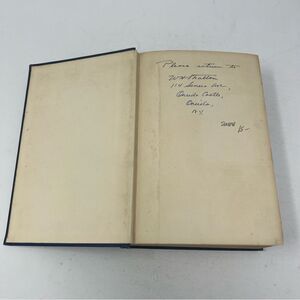 Please return to
W.H. Stratton
114 Seneca Ave.,
Oneida Castle,
Oneida,
N.Y.
15-